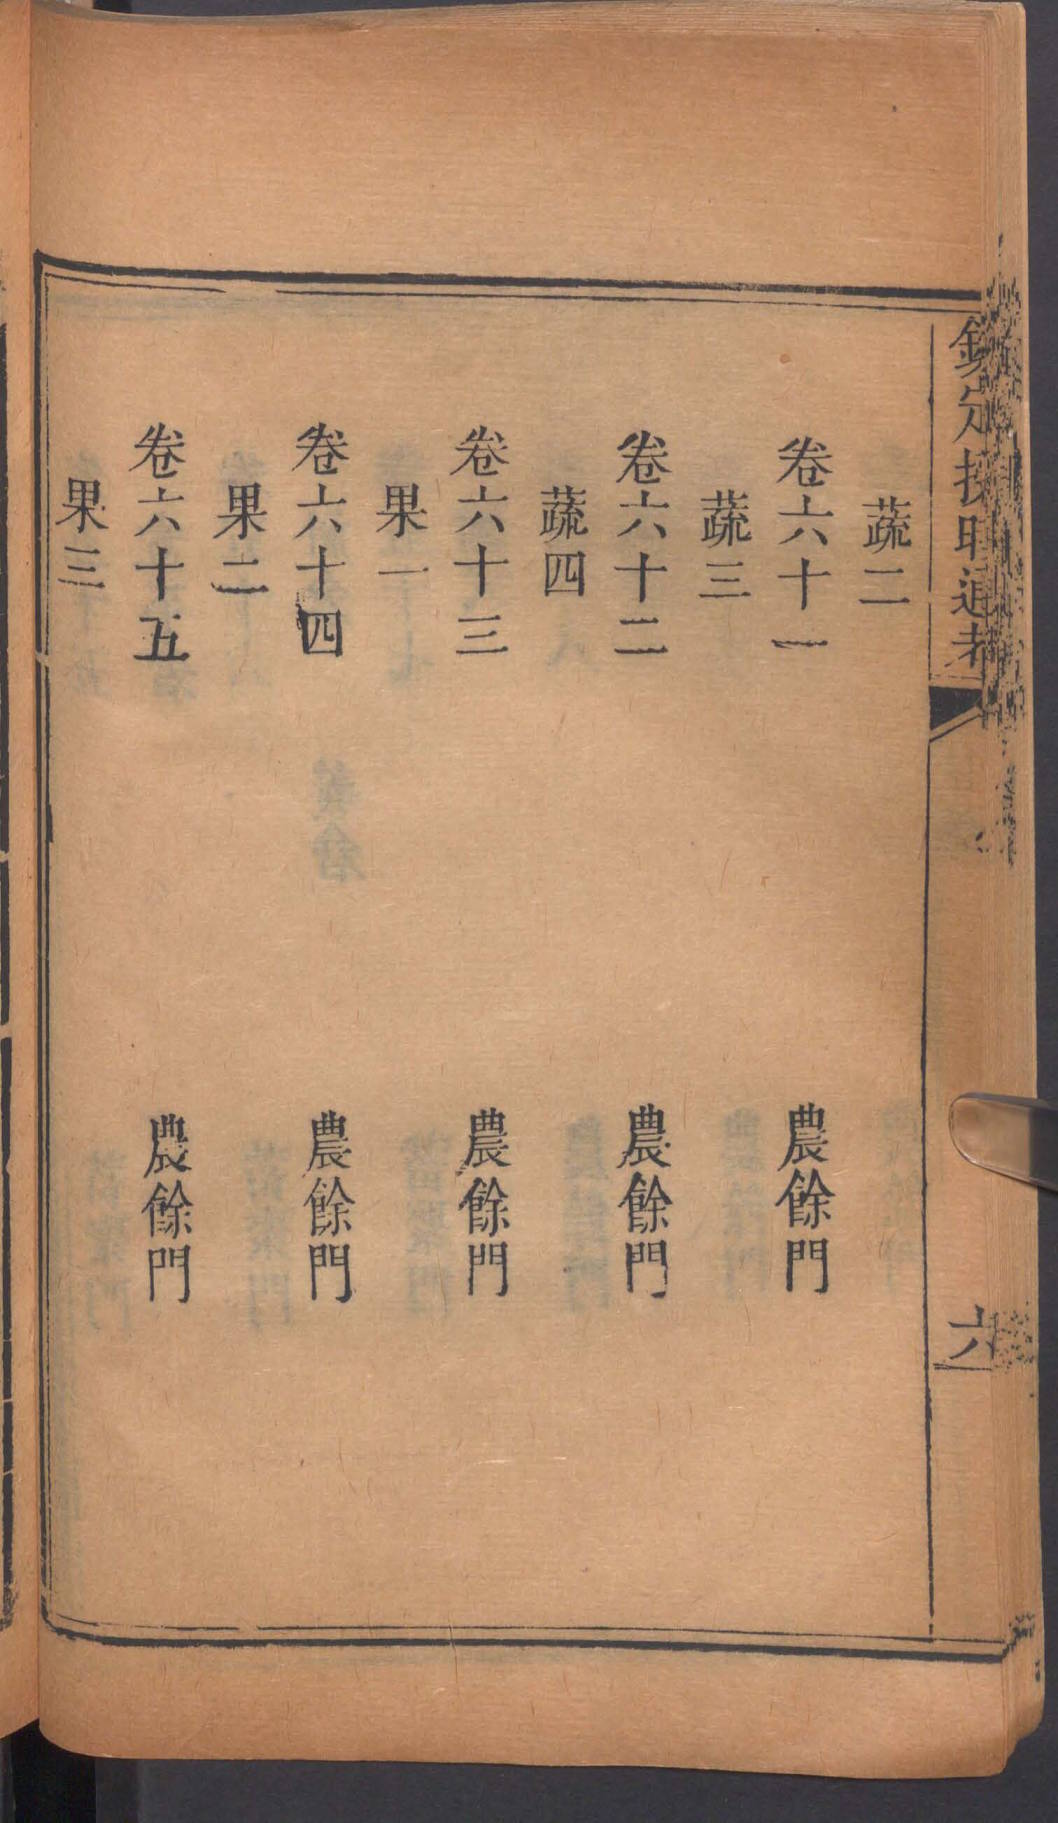 欽定授時通考
六
蔬二
卷六十一 農餘門
蔬三
卷六十二 農餘門
蔬四
卷六十三 農餘門
果一
卷六十四 農餘門
果二
卷六十五 農餘門
果三